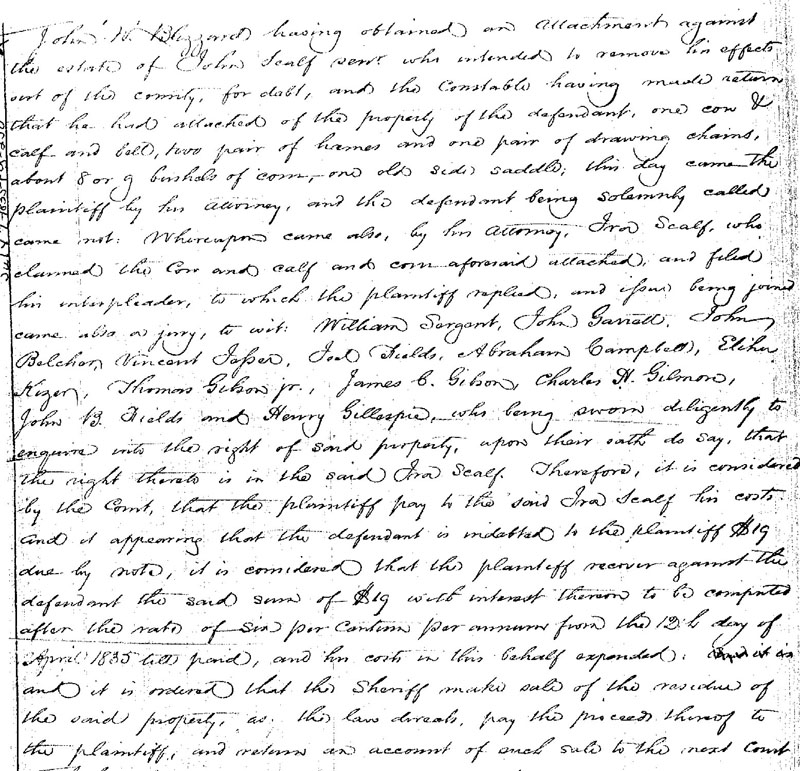 John W. Blizzard having obtained an Attachment against
the estate of John Scalf senr. who intended to remove his effects
out of the county, for debt, and the Constable having made return
that he had attached of the property of the defendant, one cow &
calf and bell, two pair of hames and one pair of drawing chains,
about 8 or 9 bushels of corn, one old side saddle; this day came the
plaintiff by his attorney, and the defendant being solemnly called
came not: Whereupon came also, by his Attorney, Ira Scalf, who
claimed the Cow and calf and corn aforesaid attached, and filed
his interpleader, to which the plaintiff replied, and issue being joined
came also a jury, to wit: William Sergent, John Garrett, John
Belcher, Vincent Jasser, Joel Fields, Abraham Campbell, Elihu
Kizer, Thomas Gibson jr., James C. Gibson, Charles H. Gilmon,
John B. Fields and Henry Gillespie, who being sworn diligently to
enquire into the right of said property, upon their oath do say, that
the right thereto is in the said Ira Scalf. Therefore, it is considered
by the Court, that the plaintiff pay to the said Ira Scalf his costs.
And it appearing that the defendant is indebted to the plaintiff $19
due by note, it is considered that the plaintiff recover against the
defendant the said sum of $19 with interest thereon to be computed
after the rate of six per Centum per annum from the 12th day of
April 1835 till paid, and his costs in this behalf expended:
and it is ordered that the Sheriff make sale of the residue of
the said property, as the law directs, pay the proceeds thereof to
the plaintiff, and return an account of such sale to the next Court